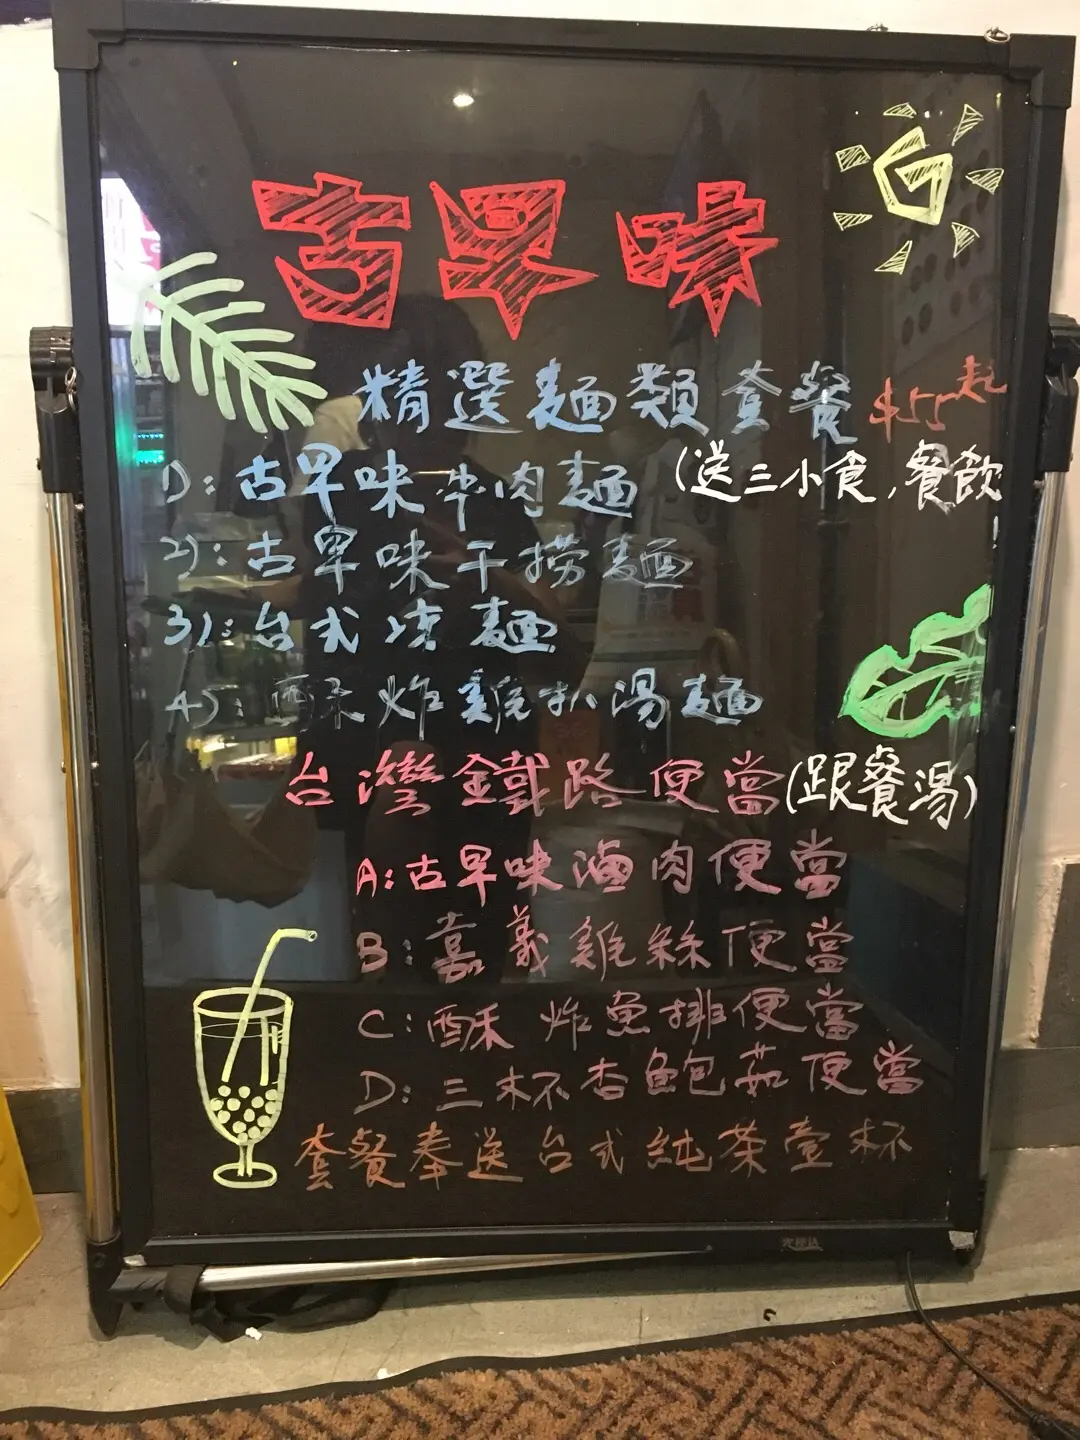 古早味
精選麵類套餐 $55起
1): 古早味牛肉麵 (送三小食,餐飲!
2): 古早味干撈麵
3): 台式凍麵
4): 酥炸雞扒湯麵
台灣鐵路便當(跟餐湯)
A: 古早味滷肉便當
B: 嘉義雞絲便當
C: 酥炸魚排便當
D: 三杯杏鮑菇便當
套餐奉送台式純茶壹杯